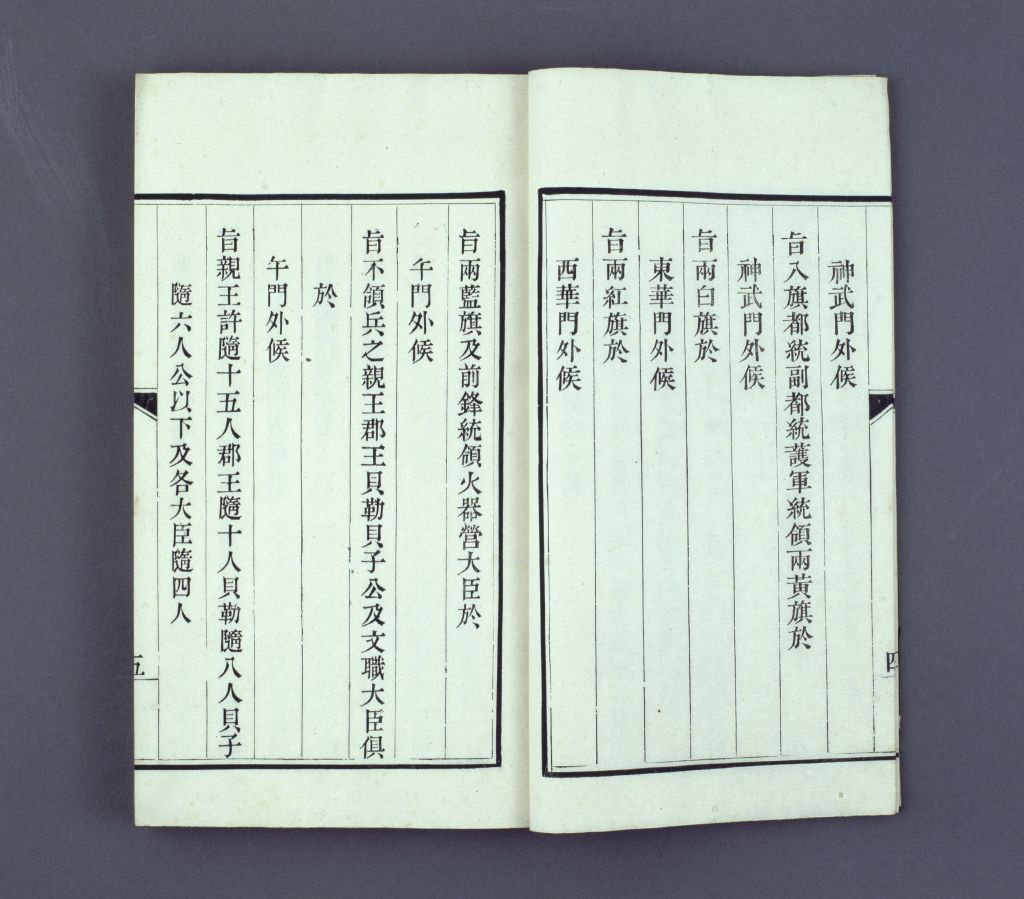 神武門外候
旨八旗都統副都統護軍統領兩黃旗於
神武門外候
旨兩白旗於
東華門外候
旨兩紅旗於
西華門外候
旨兩藍旗及前鋒統領火器營大臣於
午門外候
旨不領兵之親王郡王貝勒貝子公及文職大臣俱
於
午門外候
旨親王許隨十五人郡王隨十人貝勒隨八人貝子
隨六人公以下及各大臣隨四人
四
五